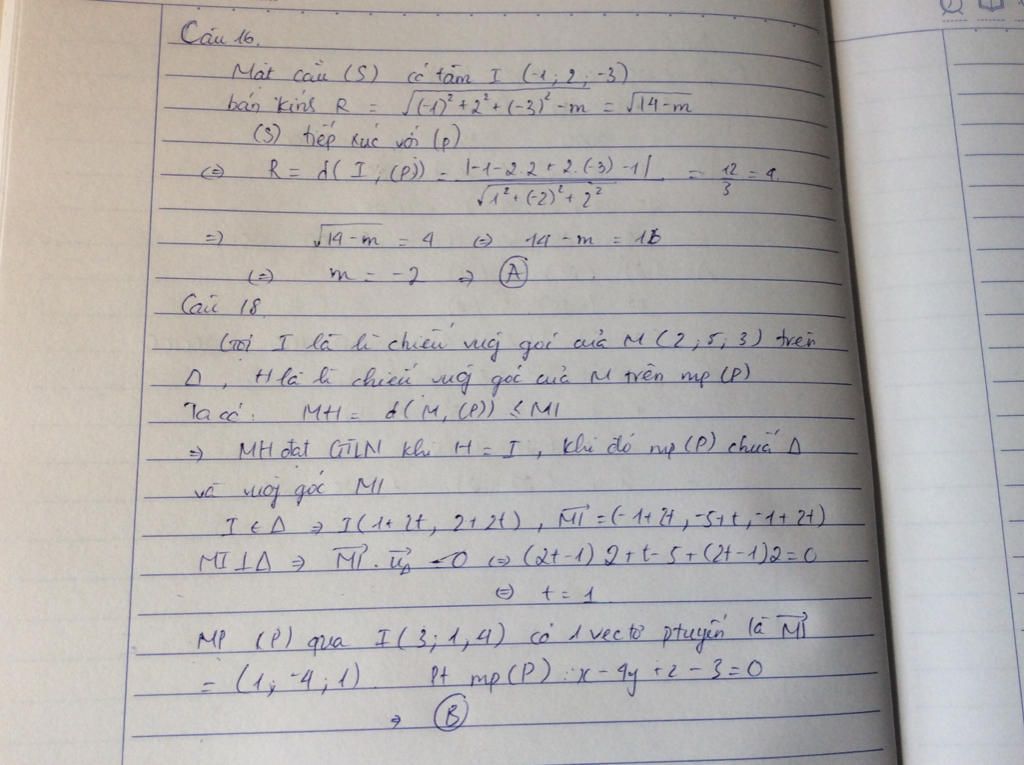 Câu 16.
Mặt cầu (S) có tâm I (-1; 2; -3)
bán kính R = √((-1)² + 2² + (-3)² - m) = √(14-m)
(S) tiếp xúc với (P)
⇔ R = d(I, (P)) = |-1-2.2+2.(-3)-1| / √(1²+(-2)²+2²) = 12/3 = 4.
⇒ √(14-m) = 4 ⇔ 14 - m = 16
⇔ m = -2 ⇒ Ⓐ
Câu 18.
Gọi I là h chiếu vuôg góc của M (2; 5; 3) trên
Δ, H là h chiếu vuôg góc của M trên mp (P)
Ta có: MH = d(M, (P)) ≤ MI
⇒ MH đạt GTLN khi H = I, khi đó mp (P) chứa Δ
và vuôg góc MI
I ∈ Δ ⇒ I(1+2t, 2+2t), MI⃗ = (-1+2t, -5+t, -1+2t)
MI ⊥ Δ ⇒ MI⃗ . u⃗_Δ = 0 ⇔ (2t-1) 2 + t - 5 + (2t-1)2 = 0
⇔ t = 1
MP (P) qua I (3; 1, 4) có 1 vectơ ptuyến là MI⃗
= (1; -4; 1) Pt mp (P): x - 4y + z - 3 = 0
⇒ Ⓑ